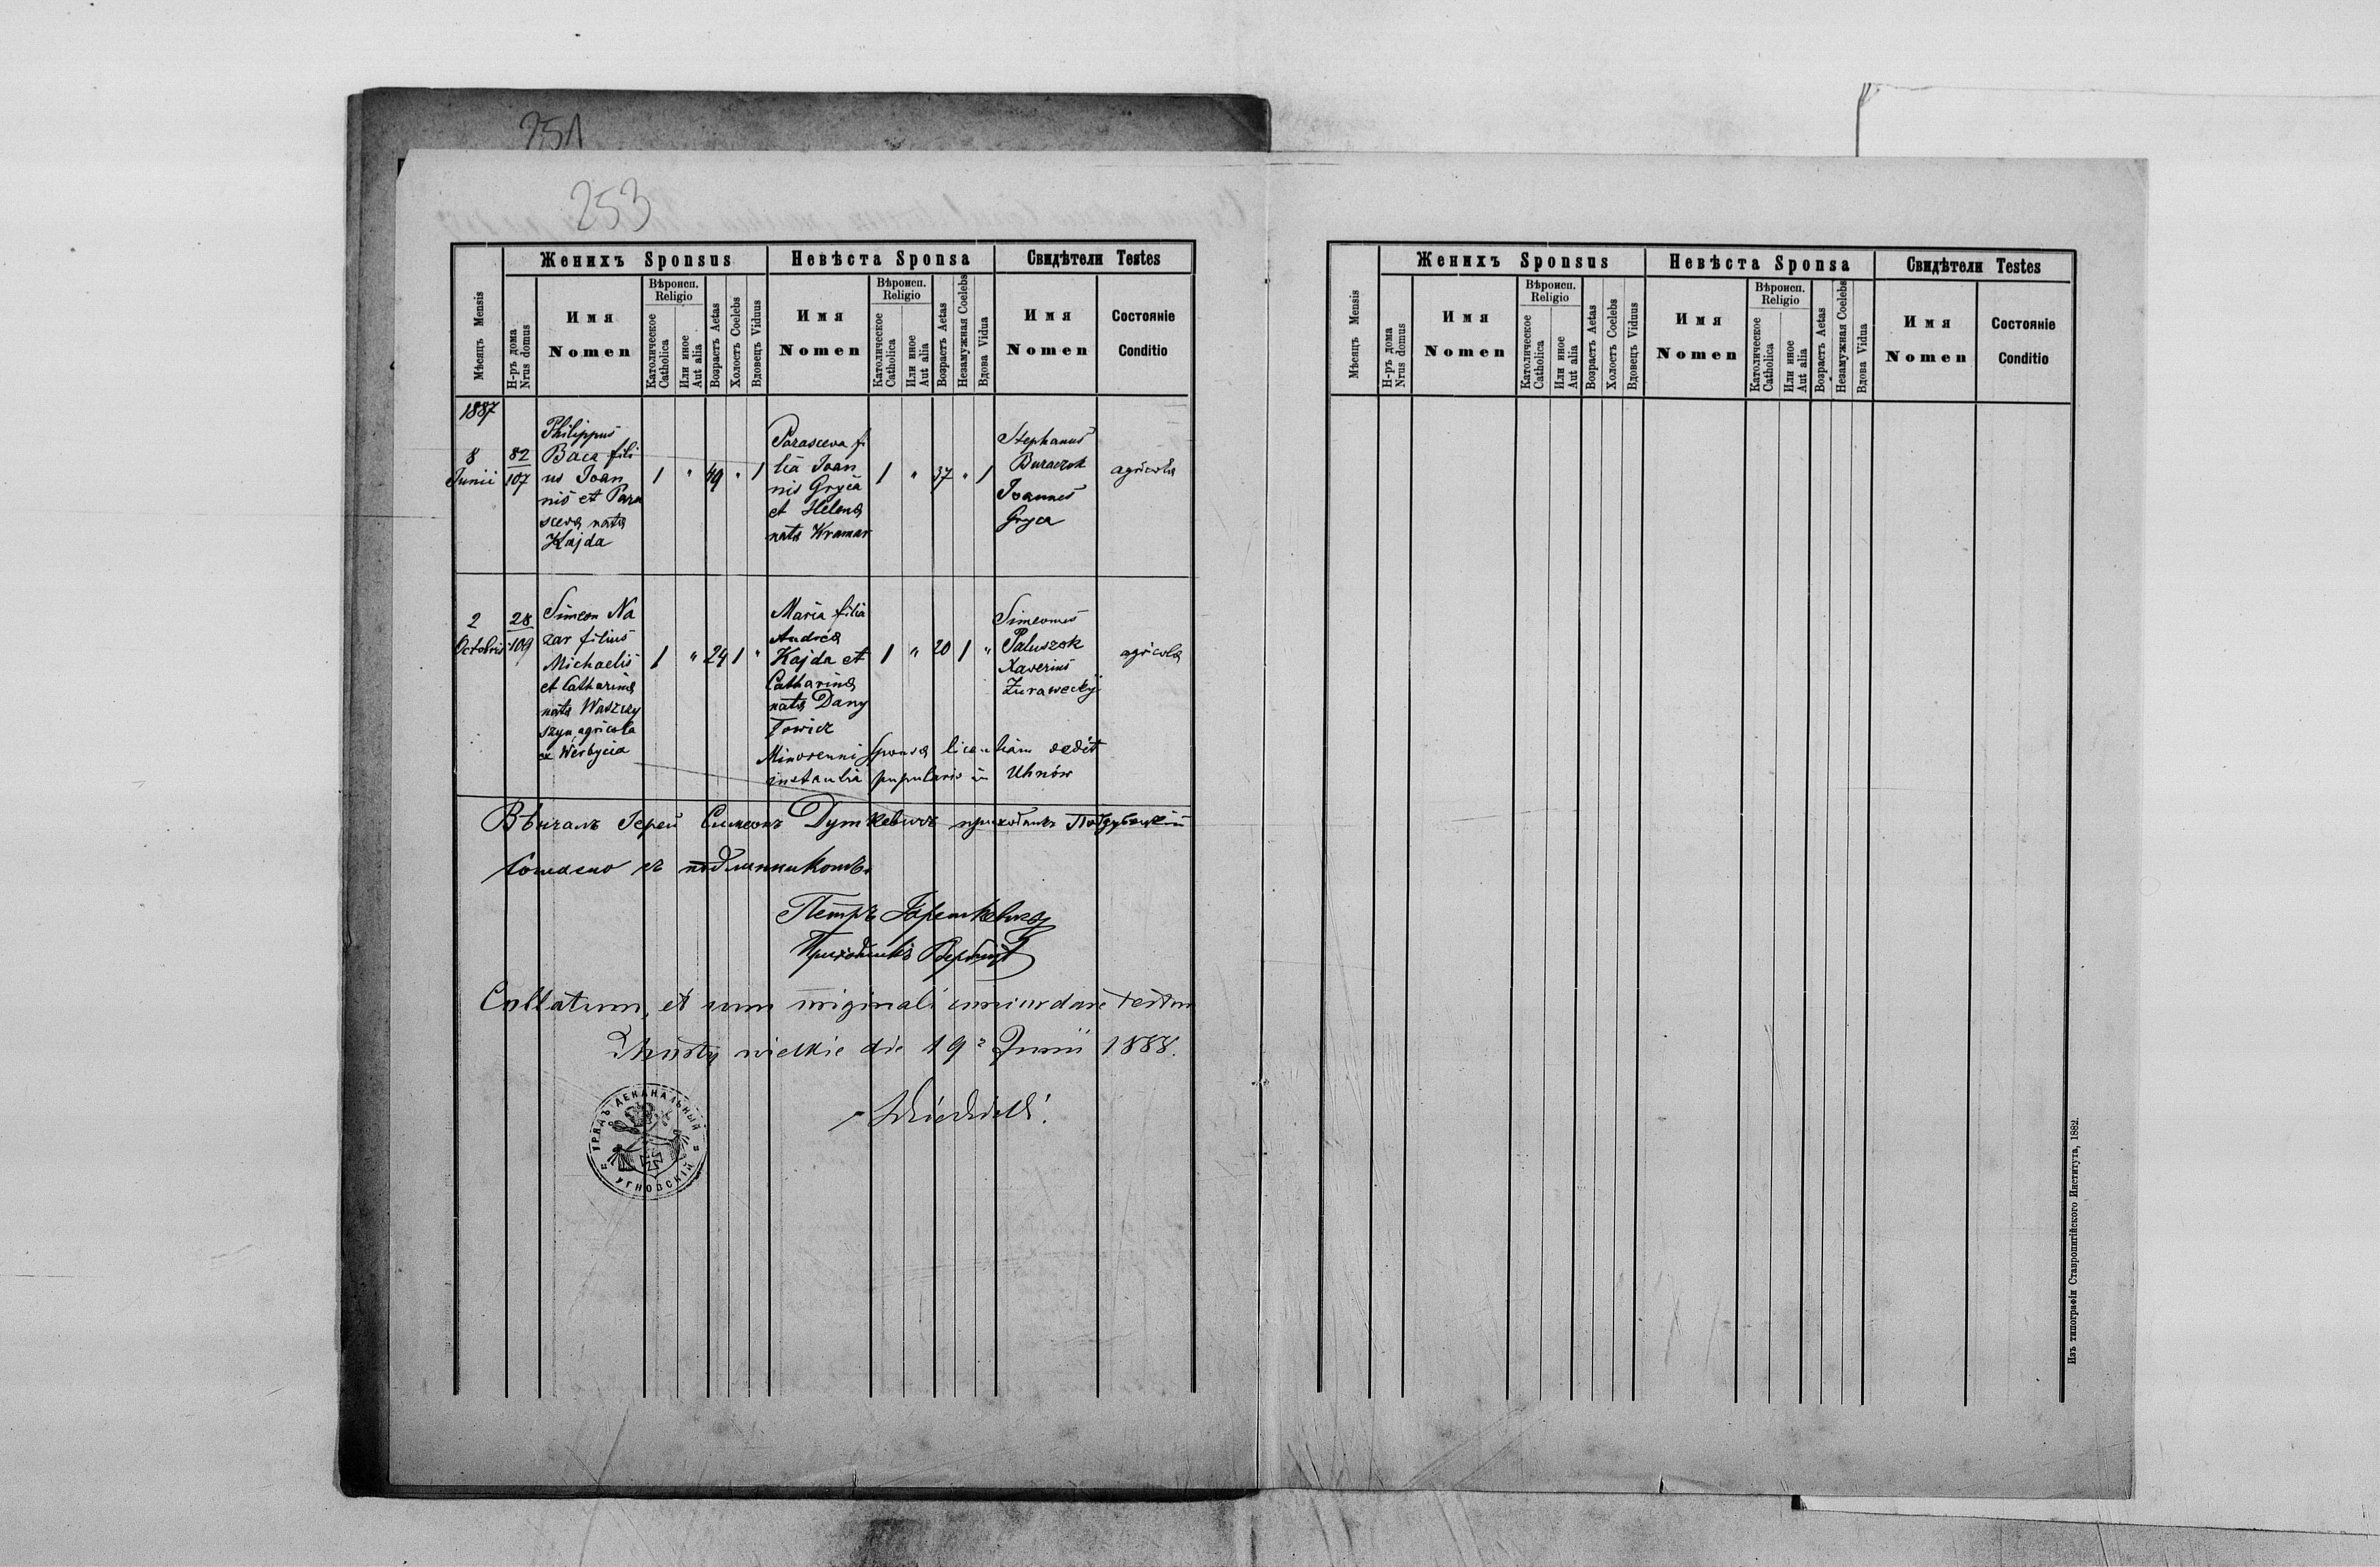 251
253
Женихъ Sponsus
Невѣста Sponsa
Свидѣтели Testes
Мѣсяцъ Mensis
Н-ръ дома
Nrus domus
Имя
Nomen
Вѣроисп.
Religio
Католическое
Catholica
Или иное
Aut alia
Возрастъ Aetas
Холостъ Coelebs
Вдовецъ Viduus
Имя
Nomen
Вѣроисп.
Religio
Католическое
Catholica
Или иное
Aut alia
Возрастъ Aetas
Незамужная Coelebs
Вдова Vidua
Имя
Nomen
Состояніе
Conditio
1887
8
Junii
82
107
Philippus
Baca fili
us Joan
nis et Para
sceva nata
Kajda
1 " 49 " 1
Parasceva fi
lia Joan
nis Gryca
et Helena
nata Kramar
1 " 37 " 1
Stephanus
Buraczok
Joannes
Gryca
agricola
2
Octobris
28
109
Simeon Na
zar filius
Michaelis
et Catharina
nata Waszczy
szyn, agricola
ex Werbycia
1 " 24 1 "
Maria filia
Andrea
Kajda et
Catharina
nata Dany
łowicz
1 " 20 1 "
Simeones
Paluszok
Xaverius
Żurawecky
agricola
Minorenni sponsa licentiam dedit
instantia pupularis in Uhnów
Вѣнчалъ Іерей Симеонъ Дуткевичъ приходникъ
съ подлинникомъ
Петръ
Приходникъ
Collatum, et cum originali concordare testor
wielkie die 19 Junii 1888.
УРЯДЪ ДЕКАНАЛЬНЫЙ
УГНОВСКІЙ
Женихъ Sponsus
Невѣста Sponsa
Свидѣтели Testes
Мѣсяцъ Mensis
Н-ръ дома
Nrus domus
Имя
Nomen
Вѣроисп.
Religio
Католическое
Catholica
Или иное
Aut alia
Возрастъ Aetas
Холостъ Coelebs
Вдовецъ Viduus
Имя
Nomen
Вѣроисп.
Religio
Католическое
Catholica
Или иное
Aut alia
Возрастъ Aetas
Незамужная Coelebs
Вдова Vidua
Имя
Nomen
Состояніе
Conditio
Изъ типографіи Ставропигійского Института, 1882.